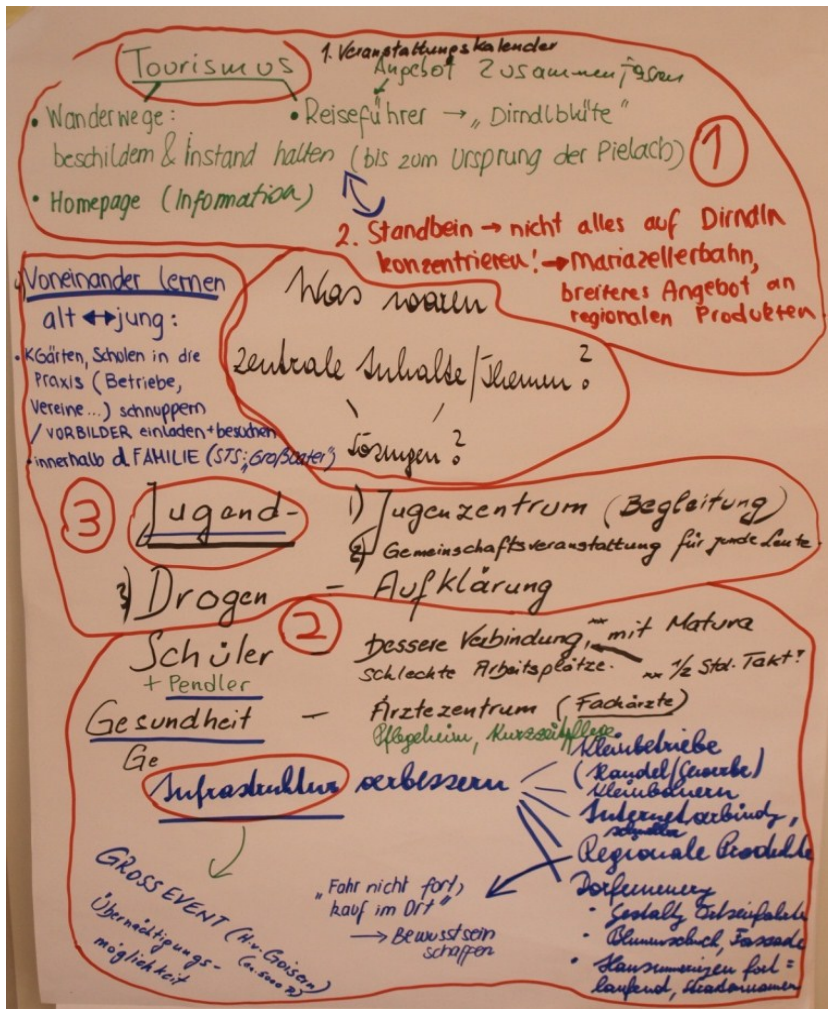 Tourismus
1. Veranstaltungskalender
Angebot zusammenfassen
• Wanderwege:
beschildern & Instand halten (bis zum Ursprung der Pielach)
• Reiseführer → „Dirndlblüte"
• Homepage (Information)
1
2. Standbein → nicht alles auf Dirndln
konzentrieren! → Mariazellerbahn,
breiteres Angebot an
regionalen Produkten
Voneinander lernen
alt ↔ jung:
• KGärten, Schulen in die
Praxis (Betriebe,
Vereine...) schnuppern
/ VORBILDER einladen + besuchen
• innerhalb d. FAMILIE (STS: „Großvater")
Was waren
zentrale Inhalte/Themen?
Lösungen?
3
Jugend-
1) Jugenzentrum (Begleitung)
2) Gemeinschaftsveranstaltung für junge Leute.
3) Drogen – Aufklärung
2
Schüler – bessere Verbindung, mit Matura
+ Pendler
schlechte Arbeitsplätze.
1/2 Std. Takt?
Gesundheit – Ärztezentrum (Fachärzte)
Pflegeheim, Kurzzeitpflege
Ge
Infrastruktur verbessern
Kleinbetriebe
(Handel/Gewerbe)
Kleinbauern
Internetverbindg,
schneller
Regionale Produkte
Dorferneuerg
• Gestaltg Ortseinfahrt
• Blumenschmuck, Fassade
• Hausnummerigen fort=
laufend, Straßennamen
„Fahr nicht fort,
kauf im Ort"
→ Bewusstsein
schaffen
GROSSEVENT (H.v. Goisern)
(ca. 5000 P.)
Übernächtigungs-
möglichkeit